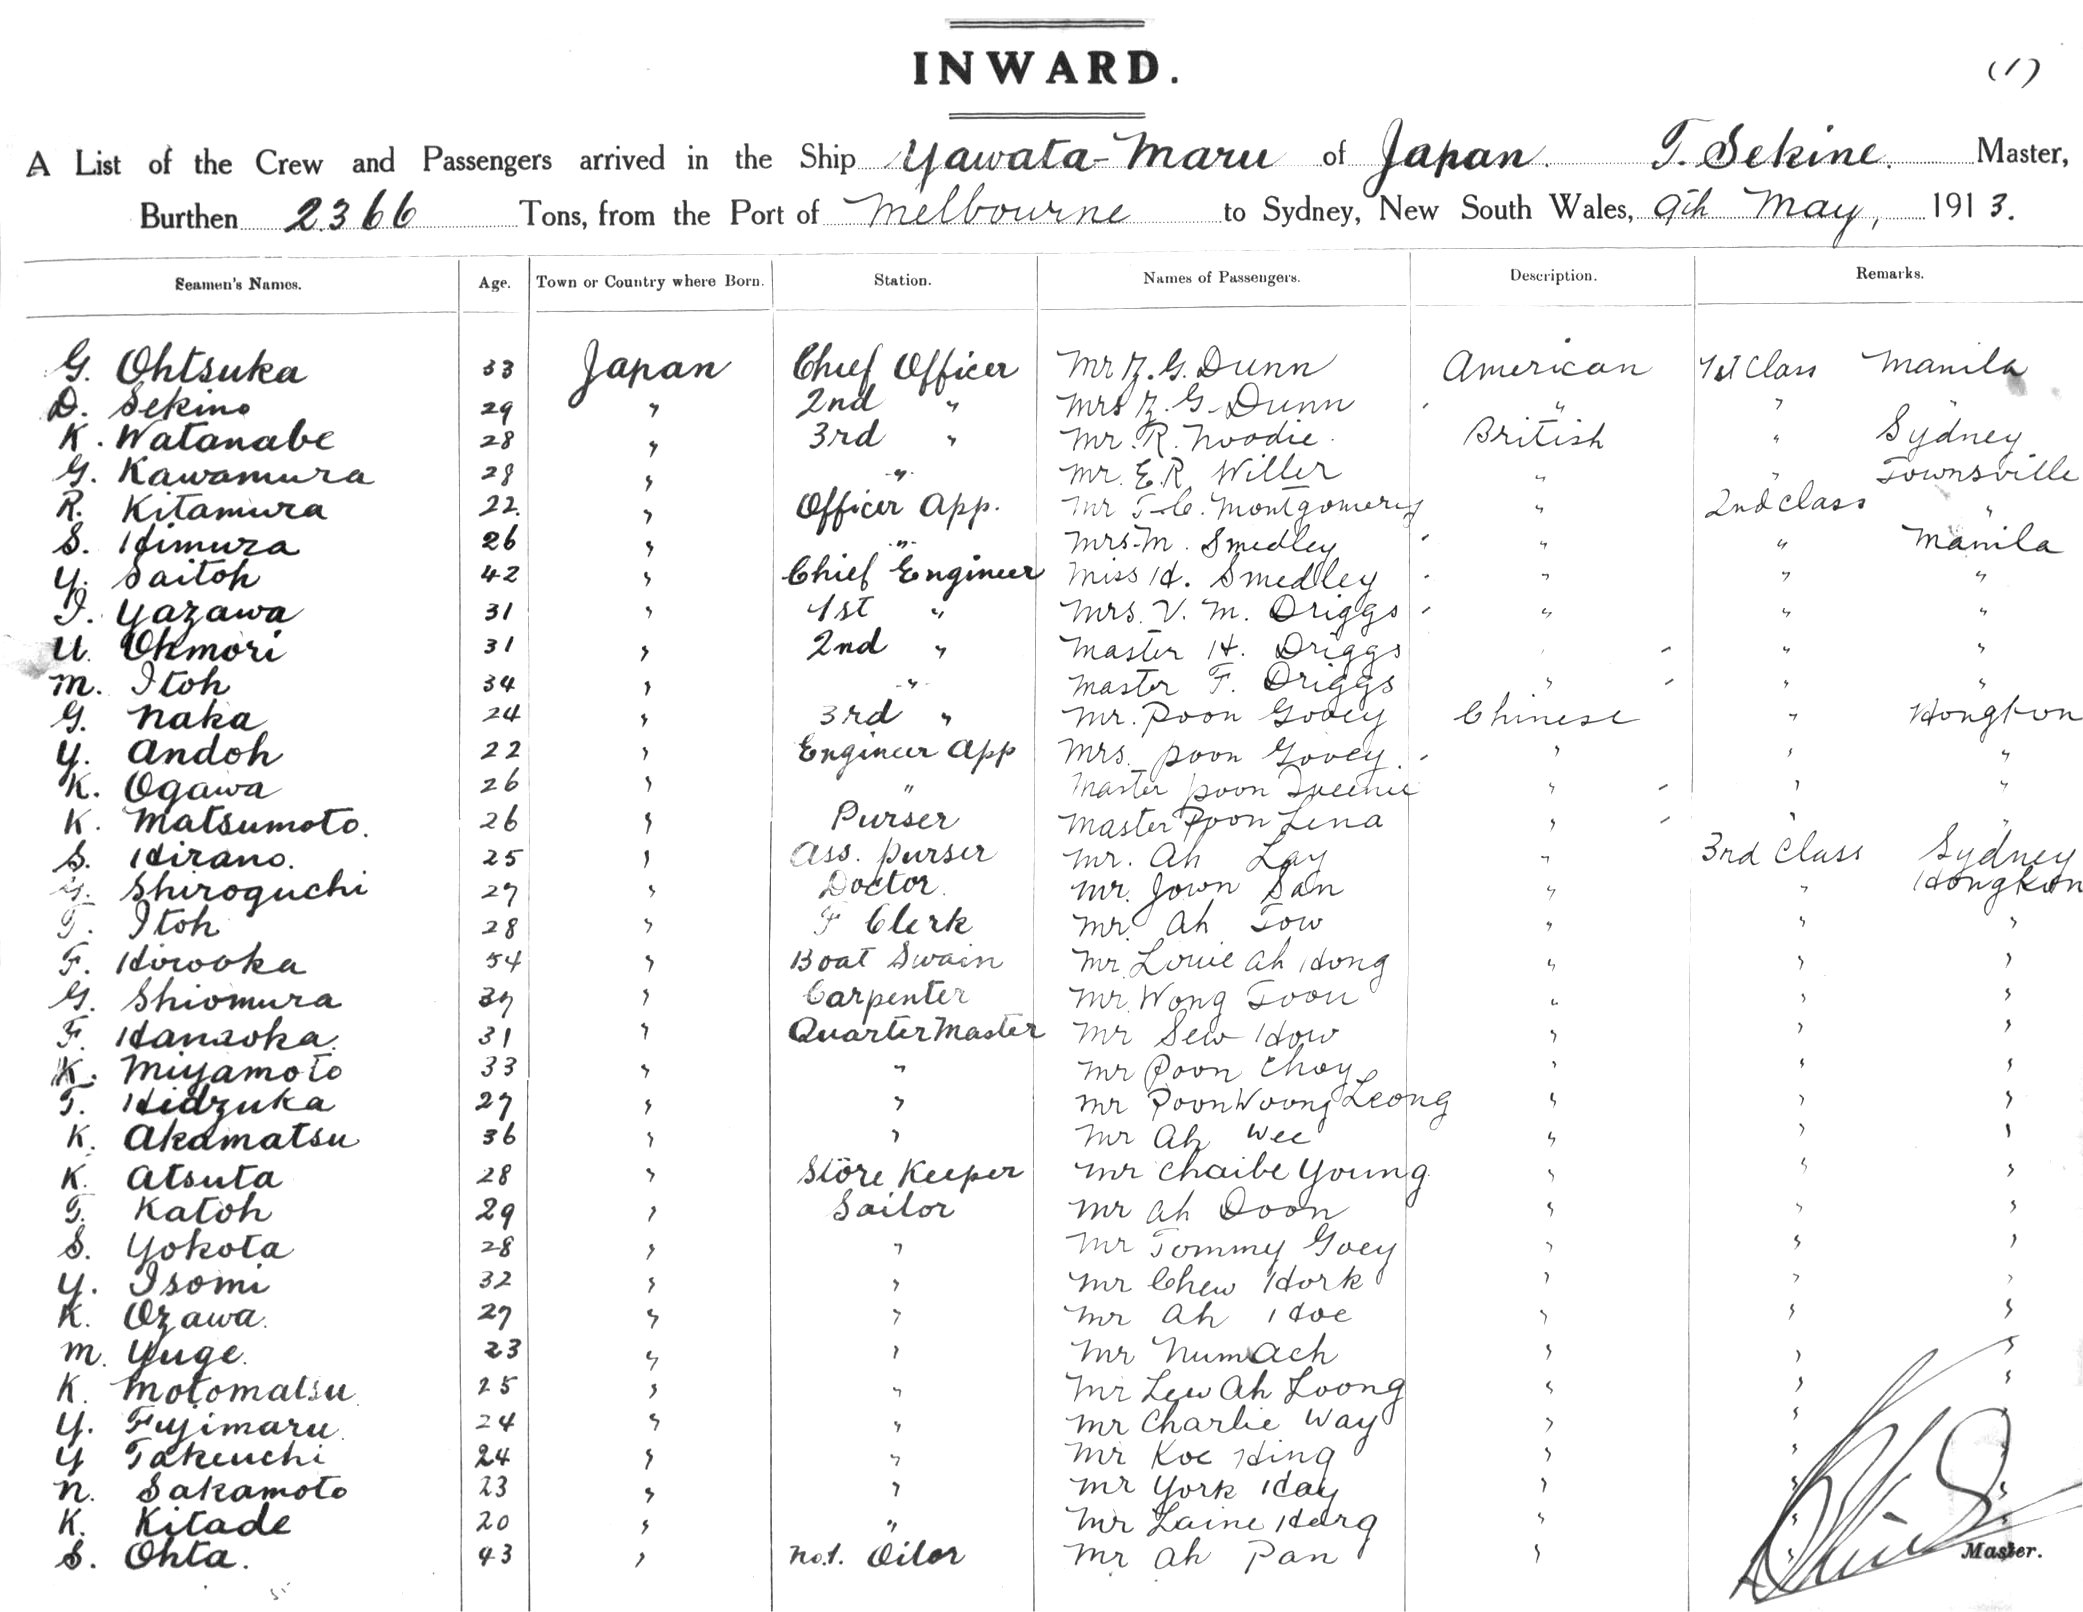 INWARD.
(1)
A List of the Crew and Passengers arrived in the Ship Yawata-Maru of Japan. T. Sekine. Master,
Burthen 2366 Tons, from the Port of Melbourne to Sydney, New South Wales, 9th May, 1913.
Seamen's Names. Age. Town or Country where Born. Station. Names of Passengers. Description. Remarks.
G. Ohtsuka 33 Japan Chief Officer Mr Z. G. Dunn American 1st Class Manila
D. Sekino 29 " 2nd " Mrs Z. G. Dunn " " "
K. Watanabe 28 " 3rd " Mr. R. Noodie. British " Sydney
G. Kawamura 28 " " Mr. E.R. Willer " " Townsville
R. Kitamura 22. " Officer App. Mr T. C. Montgomery " 2nd class "
S. Himura 26 " " Mrs. M. Smedley " " Manila
Y. Saitoh 42 " Chief Engineer Miss H. Smedley " " "
I. Yazawa 31 " 1st " Mrs. V. M. Driggs " " "
U. Ohmori 31 " 2nd " Master H. Driggs " " "
M. Itoh 34 " " Master F. Driggs " " "
G. Naka 24 " 3rd " Mr. Poon Gooey Chinese " Hongkon
Y. Andoh 22 " Engineer App Mrs. Poon Gooey. " " "
K. Ogawa 26 " " Master Poon " " "
K. Matsumoto. 26 " Purser Master Poon Lena " " "
S. Hirano. 25 " Ass. purser Mr. Ah Lay " 3rd Class Sydney
Shiroguchi 27 " Doctor. Mr. Jown San " " Hongkon
T. Itoh 28 " F Clerk Mr. Ah Tow " " "
F. Hirooka 54 " Boat Swain Mr. Louie Ah Hong " " "
G. Shiomura 37 " Carpenter Mr. Wong Toon " " "
F. Hanaoka. 31 " Quarter Master Mr Sew How " " "
K. Miyamoto 33 " " Mr Poon Choy " " "
T. Hidzuka 27 " " Mr Poon Woong Leong " " "
K. Akamatsu 36 " " Mr Ah Wee " " "
K. Atsuta 28 " Store Keeper Mr Chaibe Young " " "
T. Katoh 29 " Sailor Mr Ah Doon " " "
S. Yokota 28 " " Mr Tommy Goey " " "
Y. Isomi 32 " " Mr Chew Hork " " "
K. Ozawa. 27 " " Mr Ah Hoe " " "
M. Yuge. 23 " " Mr Numach " " "
K. Motomatsu 25 " " Mr Lew Ah Loong " " "
Y. Fujimaru 24 " " Mr Charlie Way " "
Y Takeuchi 24 " " Mr Koe Hing " "
N. Sakamoto 23 " " Mr York Hay " " "
K. Kitade 20 " " Mr Laine Harg " " "
S. Ohta. 43 " No.1. Oiler Mr Ah Pan "
Master.